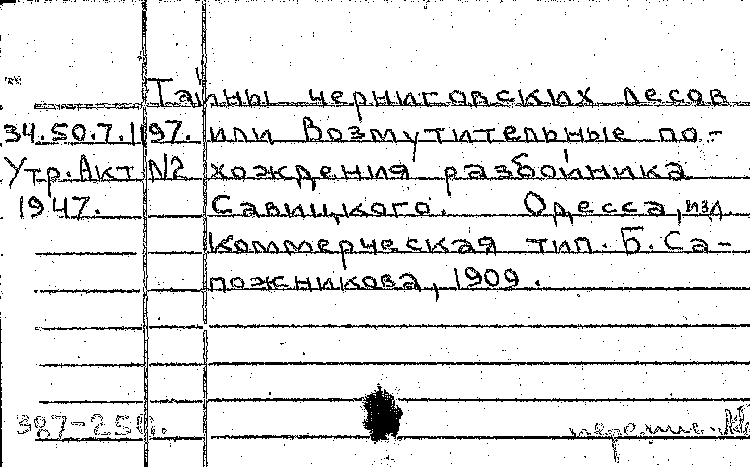 Тайны черниговских лесов
34.50.7.1197. или Возмутительные по-
Утр. Акт N2 хождения разбойника
1947. Савицкого. Одесса, изд.
Коммерческая тип. Б. Са-
пожникова, 1909.
387-25